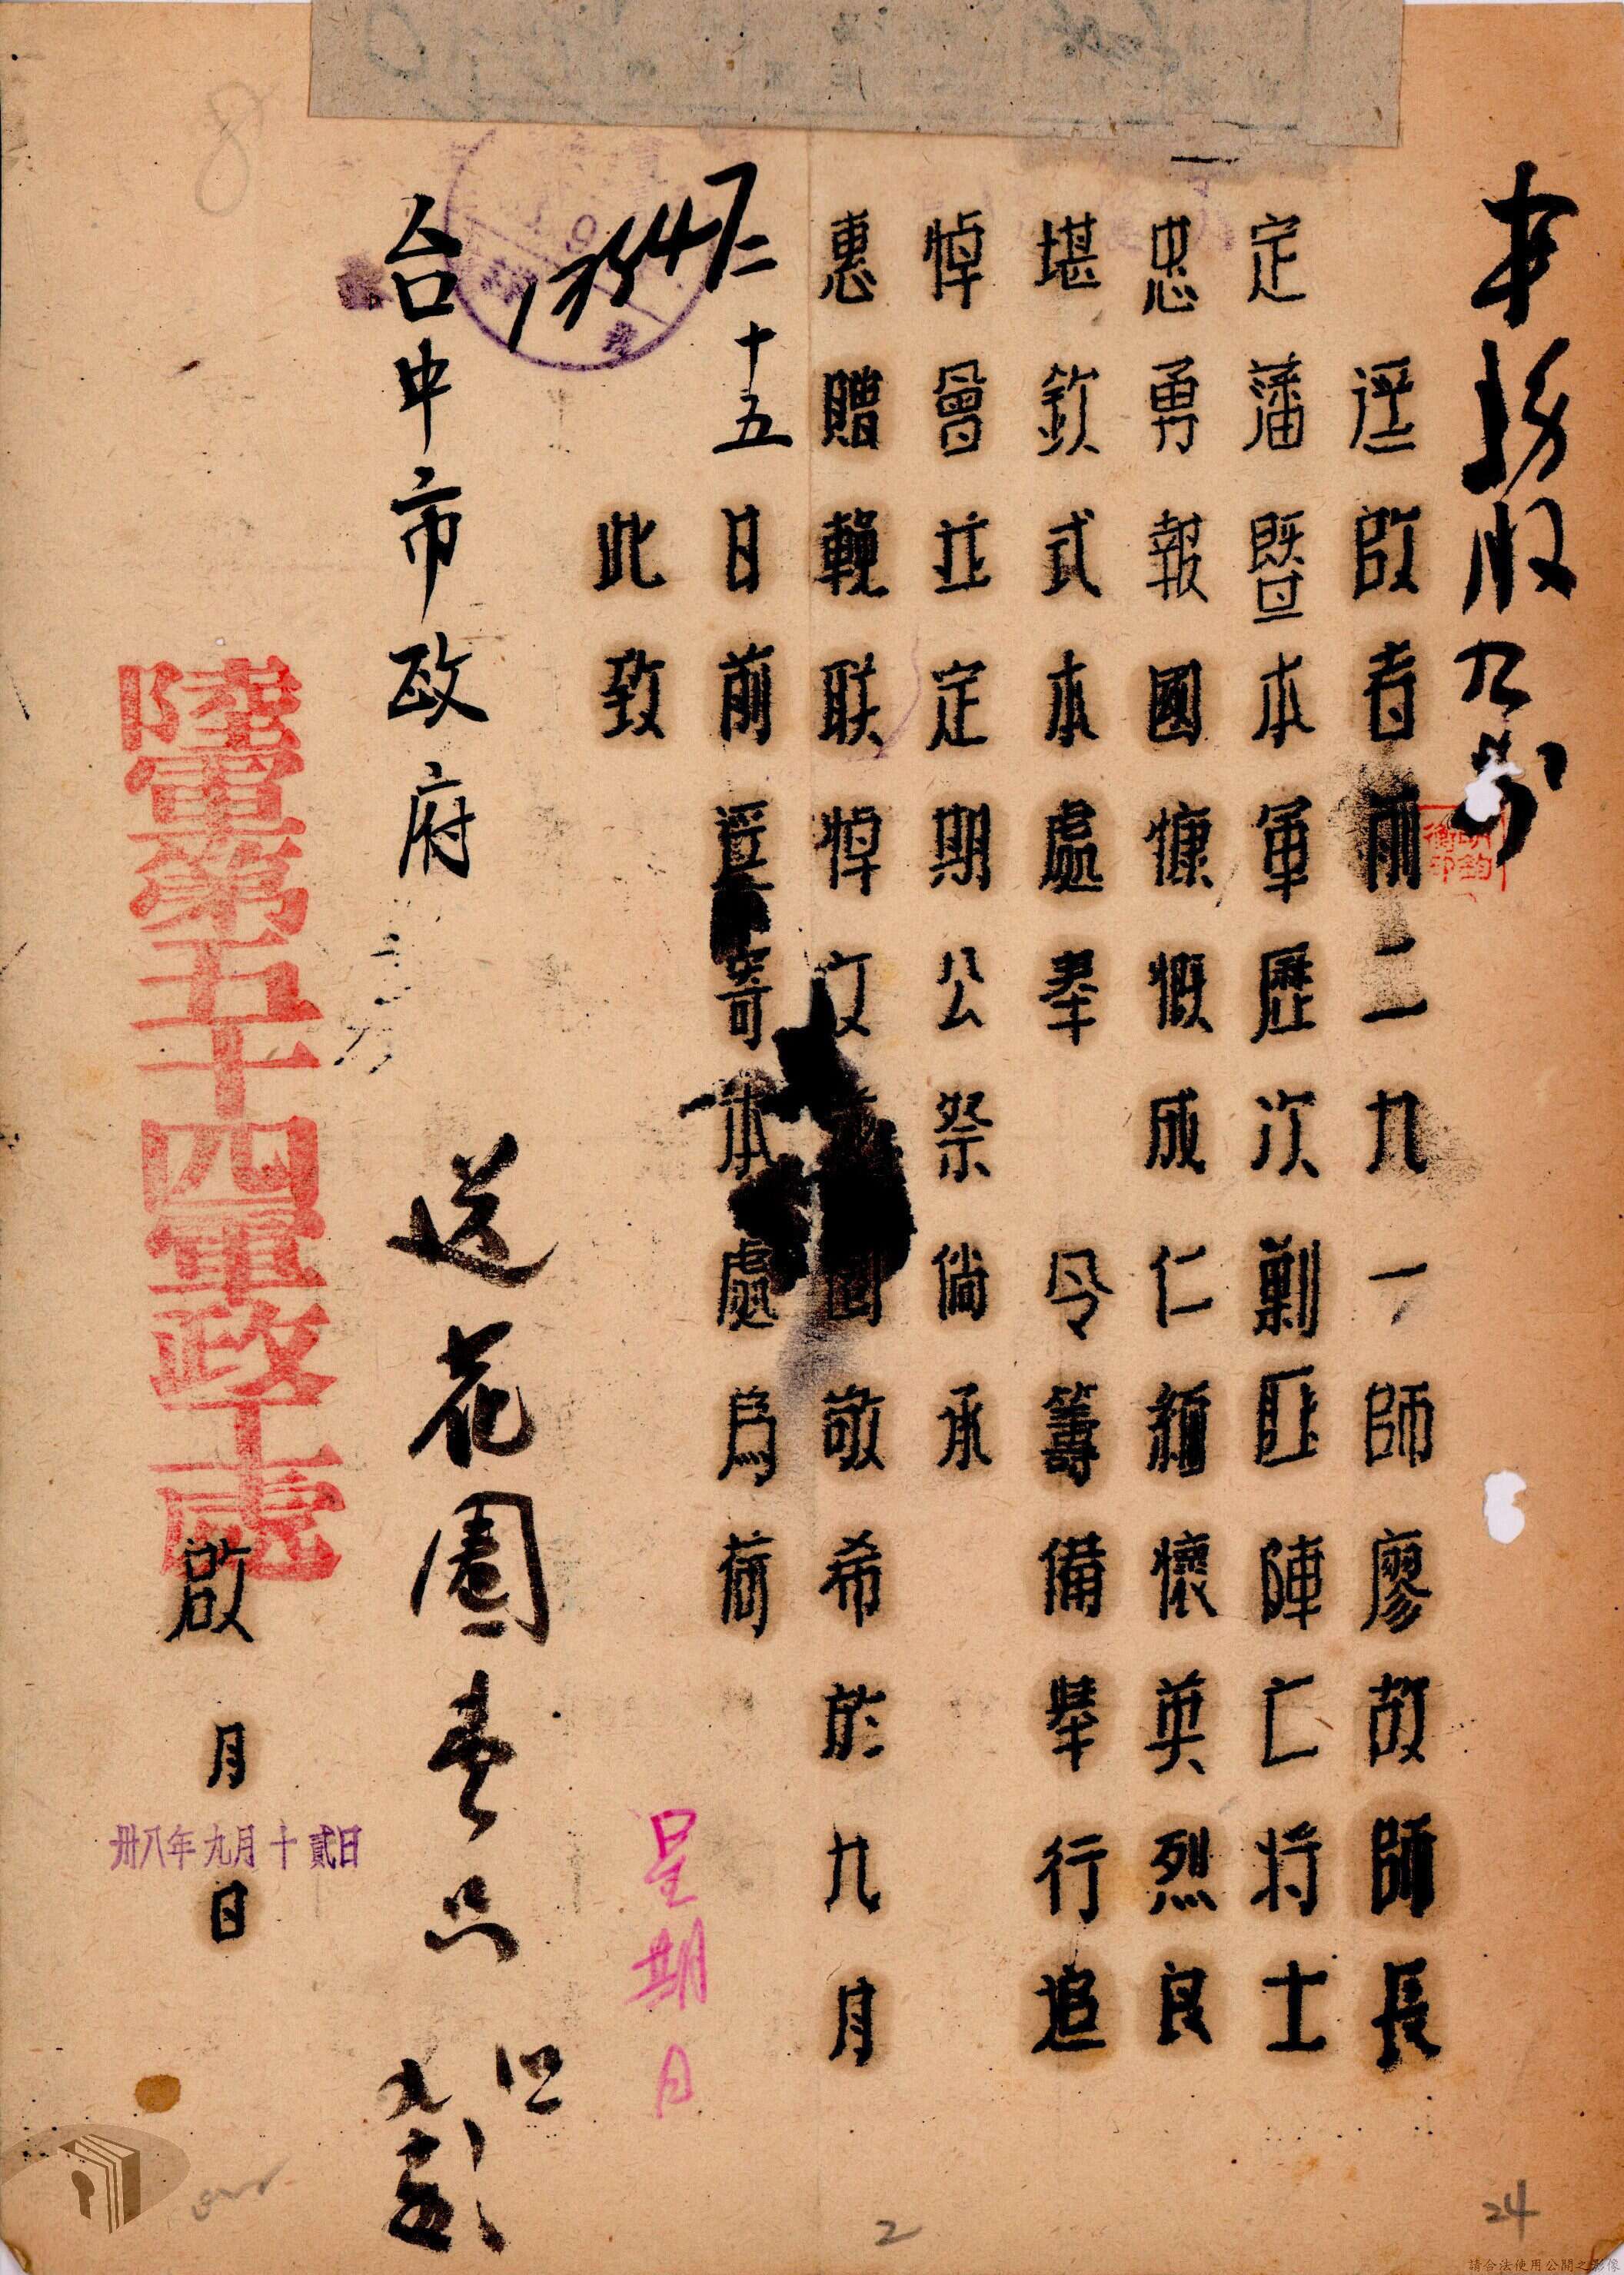 逕啟者前二九一師廖故師長
定藩暨本軍歷次剿匪陣亡将士
忠勇報國慷慨成仁緬懷英烈良
堪欽式本處奉令籌備舉行追
悼會並定期公祭倘承
惠贈輓联悼文園敬希於九月
十五日前逕寄本處為荷
此致
台中市政府
送花圈壹只
陸軍第五十四軍政工處
啟
月
日
卅八年九月十貳日
星期日
24
2
請合法使用公開之影像